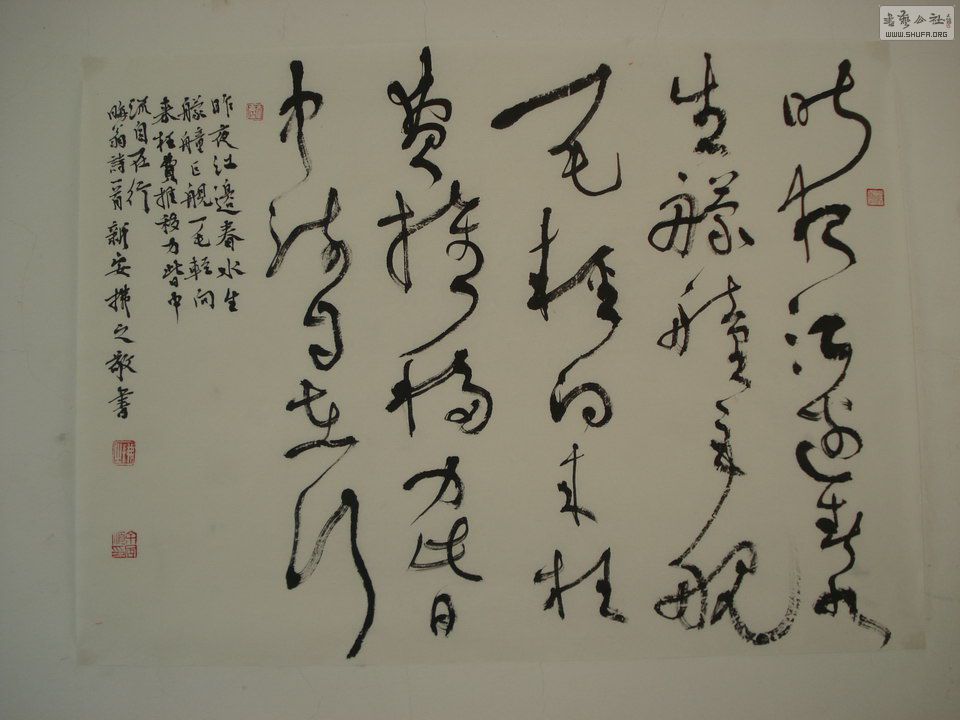 昨夜江邊春水
生艨艟巨舰
一毛輕向来枉
費推移力此日
中流自在行
昨夜江邊春水生
艨艟巨舰一毛輕向
来枉費推移力此日中
流自在行
晦翁詩一首新安拂之敬書
書藝公社
WWW.SHUFA.ORG